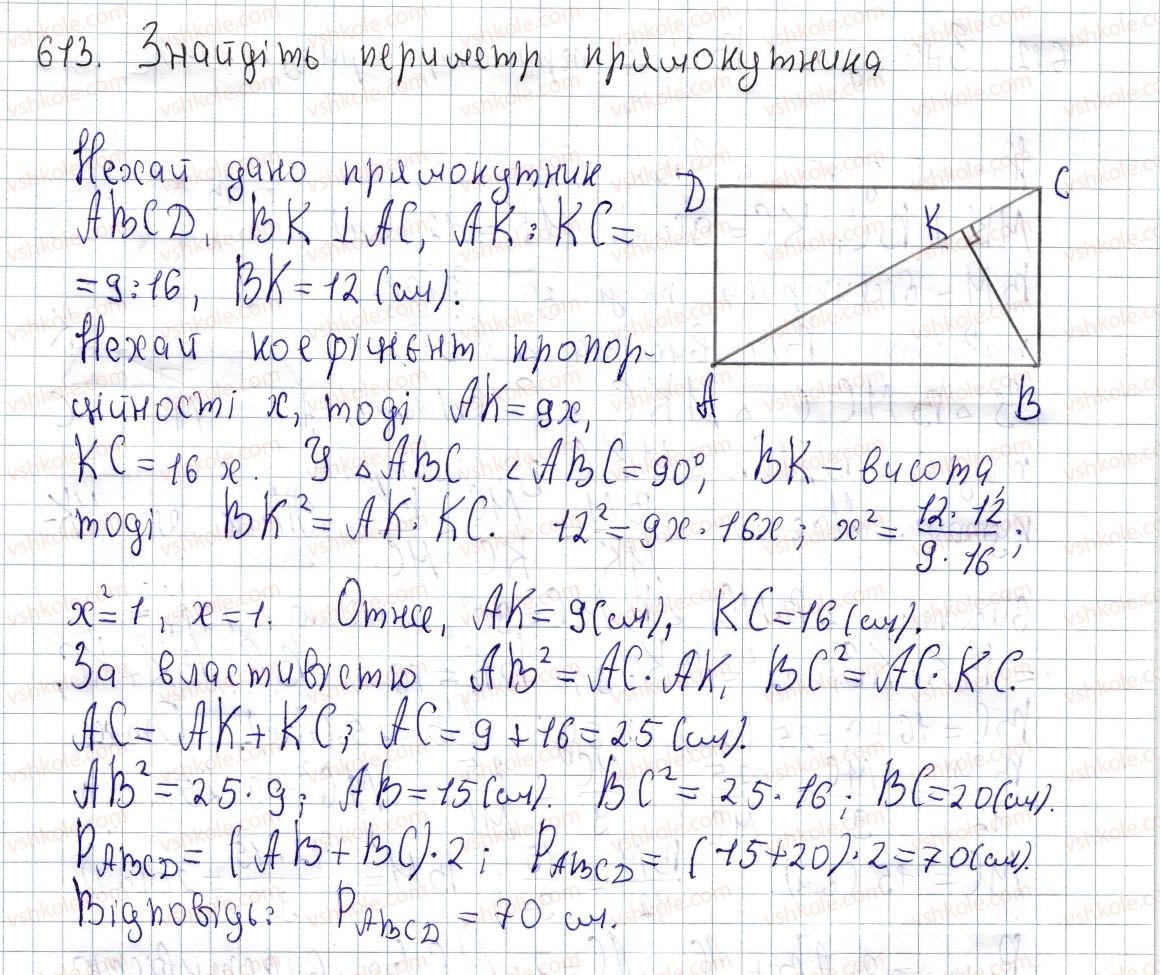 613. Знайдіть периметр прямокутника
Нехай дано прямокутник
ABCD, BK ⊥ AC, AK : KC =
= 9 : 16, BK = 12 (см).
Нехай коефіцієнт пропор-
ційності x, тоді AK = 9x,
KC = 16x. У △ABC ∠ABC = 90°, BK – висота,
тоді BK² = AK · KC. 12² = 9x · 16x; x² = (12 · 12)/(9 · 16);
x² = 1, x = 1. Отже, AK = 9 (см), KC = 16 (см).
За властивістю AB² = AC · AK, BC² = AC · KC.
AC = AK + KC; AC = 9 + 16 = 25 (см).
AB² = 25 · 9; AB = 15 (см). BC² = 25 · 16; BC = 20 (см).
P_ABCD = (AB + BC) · 2; P_ABCD = (15 + 20) · 2 = 70 (см).
Відповідь: P_ABCD = 70 см.
D
C
K
A
B
vshkole.com